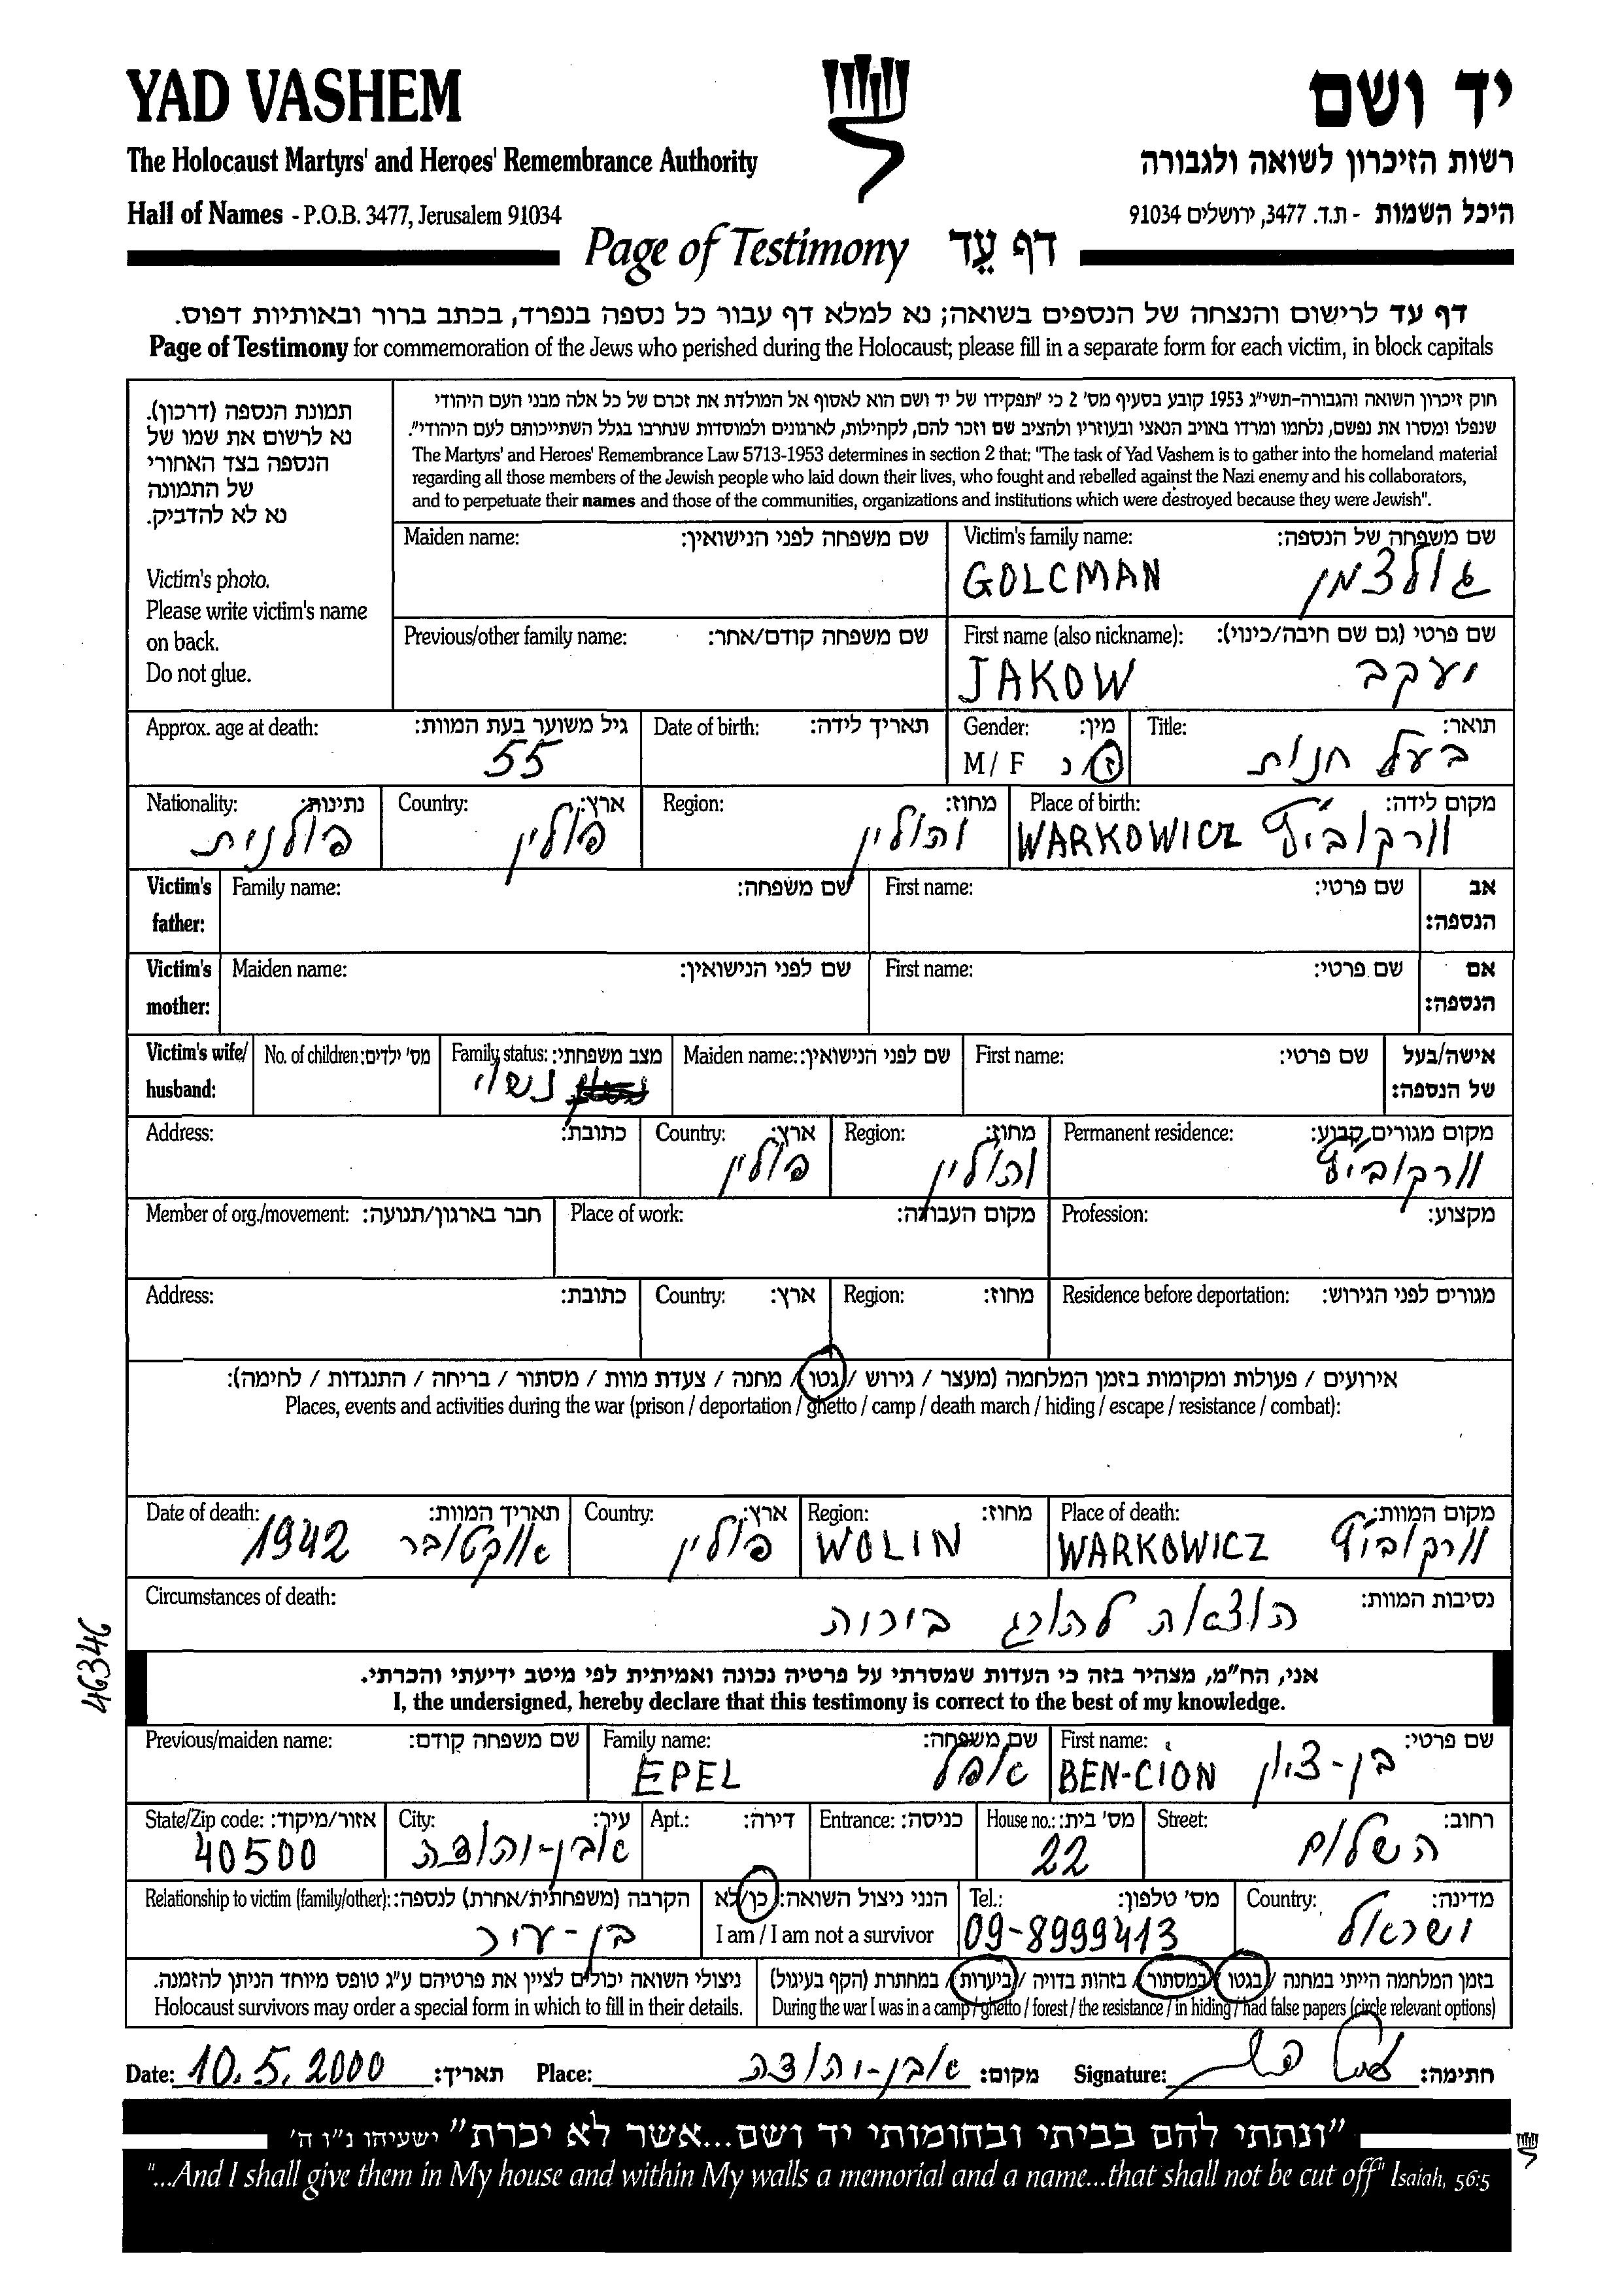 YAD VASHEM
יד ושם
The Holocaust Martyrs' and Heroes' Remembrance Authority
רשות הזיכרון לשואה ולגבורה
Hall of Names - P.O.B. 3477, Jerusalem 91034
היכל השמות - ת.ד. 3477, ירושלים 91034
Page of Testimony דף עֵד
דף עד לרישום והנצחה של הנספים בשואה; נא למלא דף עבור כל נספה בנפרד, בכתב ברור ובאותיות דפוס.
Page of Testimony for commemoration of the Jews who perished during the Holocaust; please fill in a separate form for each victim, in block capitals
תמונת הנספה (דרכון).
נא לרשום את שמו של
הנספה בצד האחורי
של התמונה
נא לא להדביק.
Victim's photo.
Please write victim's name
on back.
Do not glue.
חוק זיכרון השואה והגבורה-תשי"ג 1953 קובע בסעיף מס' 2 כי "תפקידו של יד ושם הוא לאסוף אל המולדת את זכרם של כל אלה מבני העם היהודי
שנפלו ומסרו את נפשם, נלחמו ומרדו באויב הנאצי ובעוזריו ולהציב שם וזכר להם, לקהילות, לארגונים ולמוסדות שנחרבו בגלל השתייכותם לעם היהודי".
The Martyrs' and Heroes' Remembrance Law 5713-1953 determines in section 2 that: "The task of Yad Vashem is to gather into the homeland material
regarding all those members of the Jewish people who laid down their lives, who fought and rebelled against the Nazi enemy and his collaborators,
and to perpetuate their names and those of the communities, organizations and institutions which were destroyed because they were Jewish".
Maiden name: שם משפחה לפני הנישואין: Victim's family name: שם משפחה של הנספה:
GOLCMAN גולצמן
Previous/other family name: שם משפחה קודם/אחר: First name (also nickname): שם פרטי (גם שם חיבה/כינוי):
JAKOW יעקב
Approx. age at death: גיל משוער בעת המוות: Date of birth: תאריך לידה: Gender: מין: Title: תואר:
55 M / F ז / נ בעל חנות
Nationality: נתינות: Country: ארץ: Region: מחוז: Place of birth: מקום לידה:
פולנית פולין ווהולין WARKOWICZ וורקוביץ'
Victim's father: Family name: שם משפחה: First name: שם פרטי: אב הנספה:
Victim's mother: Maiden name: שם לפני הנישואין: First name: שם פרטי: אם הנספה:
Victim's wife/ husband: No. of children: מס' ילדים: Family status: מצב משפחתי: Maiden name: שם לפני הנישואין: First name: שם פרטי: אישה/בעל של הנספה:
נשוי
Address: כתובת: Country: ארץ: Region: מחוז: Permanent residence: מקום מגורים קבוע:
פולין ווהולין וורקוביץ'
Member of org./movement: חבר בארגון/תנועה: Place of work: מקום העבודה: Profession: מקצוע:
Address: כתובת: Country: ארץ: Region: מחוז: Residence before deportation: מגורים לפני הגירוש:
אירועים / פעולות ומקומות בזמן המלחמה (מעצר / גירוש / גטו / מחנה / צעדת מוות / מסתור / בריחה / התנגדות / לחימה):
Places, events and activities during the war (prison / deportation / ghetto / camp / death march / hiding / escape / resistance / combat):
Date of death: תאריך המוות: Country: ארץ: Region: מחוז: Place of death: מקום המוות:
1942 אוקטובר פולין WOLIN WARKOWICZ וורקוביץ'
Circumstances of death: נסיבות המוות:
הוצאה להורג ביריות
46346
אני, הח"מ, מצהיר בזה כי העדות שמסרתי על פרטיה נכונה ואמיתית לפי מיטב ידיעתי והכרתי.
I, the undersigned, hereby declare that this testimony is correct to the best of my knowledge.
Previous/maiden name: שם משפחה קודם: Family name: שם משפחה: First name: שם פרטי:
EPEL אפל BEN-CION בן-ציון
State/Zip code: אזור/מיקוד: City: עיר: Apt.: דירה: Entrance: כניסה: House no.: מס' בית: Street: רחוב:
40500 אבן-יהודה 22 השלום
Relationship to victim (family/other): הקרבה (משפחתית/אחרת) לנספה: הנני ניצול השואה: כן/לא Tel.: מס' טלפון: Country: מדינה:
בן-עיר I am / I am not a survivor 09-8999413 ישראל
ניצולי השואה יכולים לציין את פרטיהם ע"ג טופס מיוחד הניתן להזמנה. בזמן המלחמה הייתי במחנה / בגטו / במסתור / בזהות בדויה / ביערות / במחתרת (הקף בעיגול)
Holocaust survivors may order a special form in which to fill in their details. During the war I was in a camp / ghetto / forest / the resistance / in hiding / had false papers (circle relevant options)
Date: 10.5.2000 תאריך: Place: אבן-יהודה מקום: Signature: חתימה:
"ונתתי להם בביתי ובחומותי יד ושם...אשר לא יכרת" ישעיהו נ"ו ה'
"...And I shall give them in My house and within My walls a memorial and a name...that shall not be cut off" Isaiah, 56:5